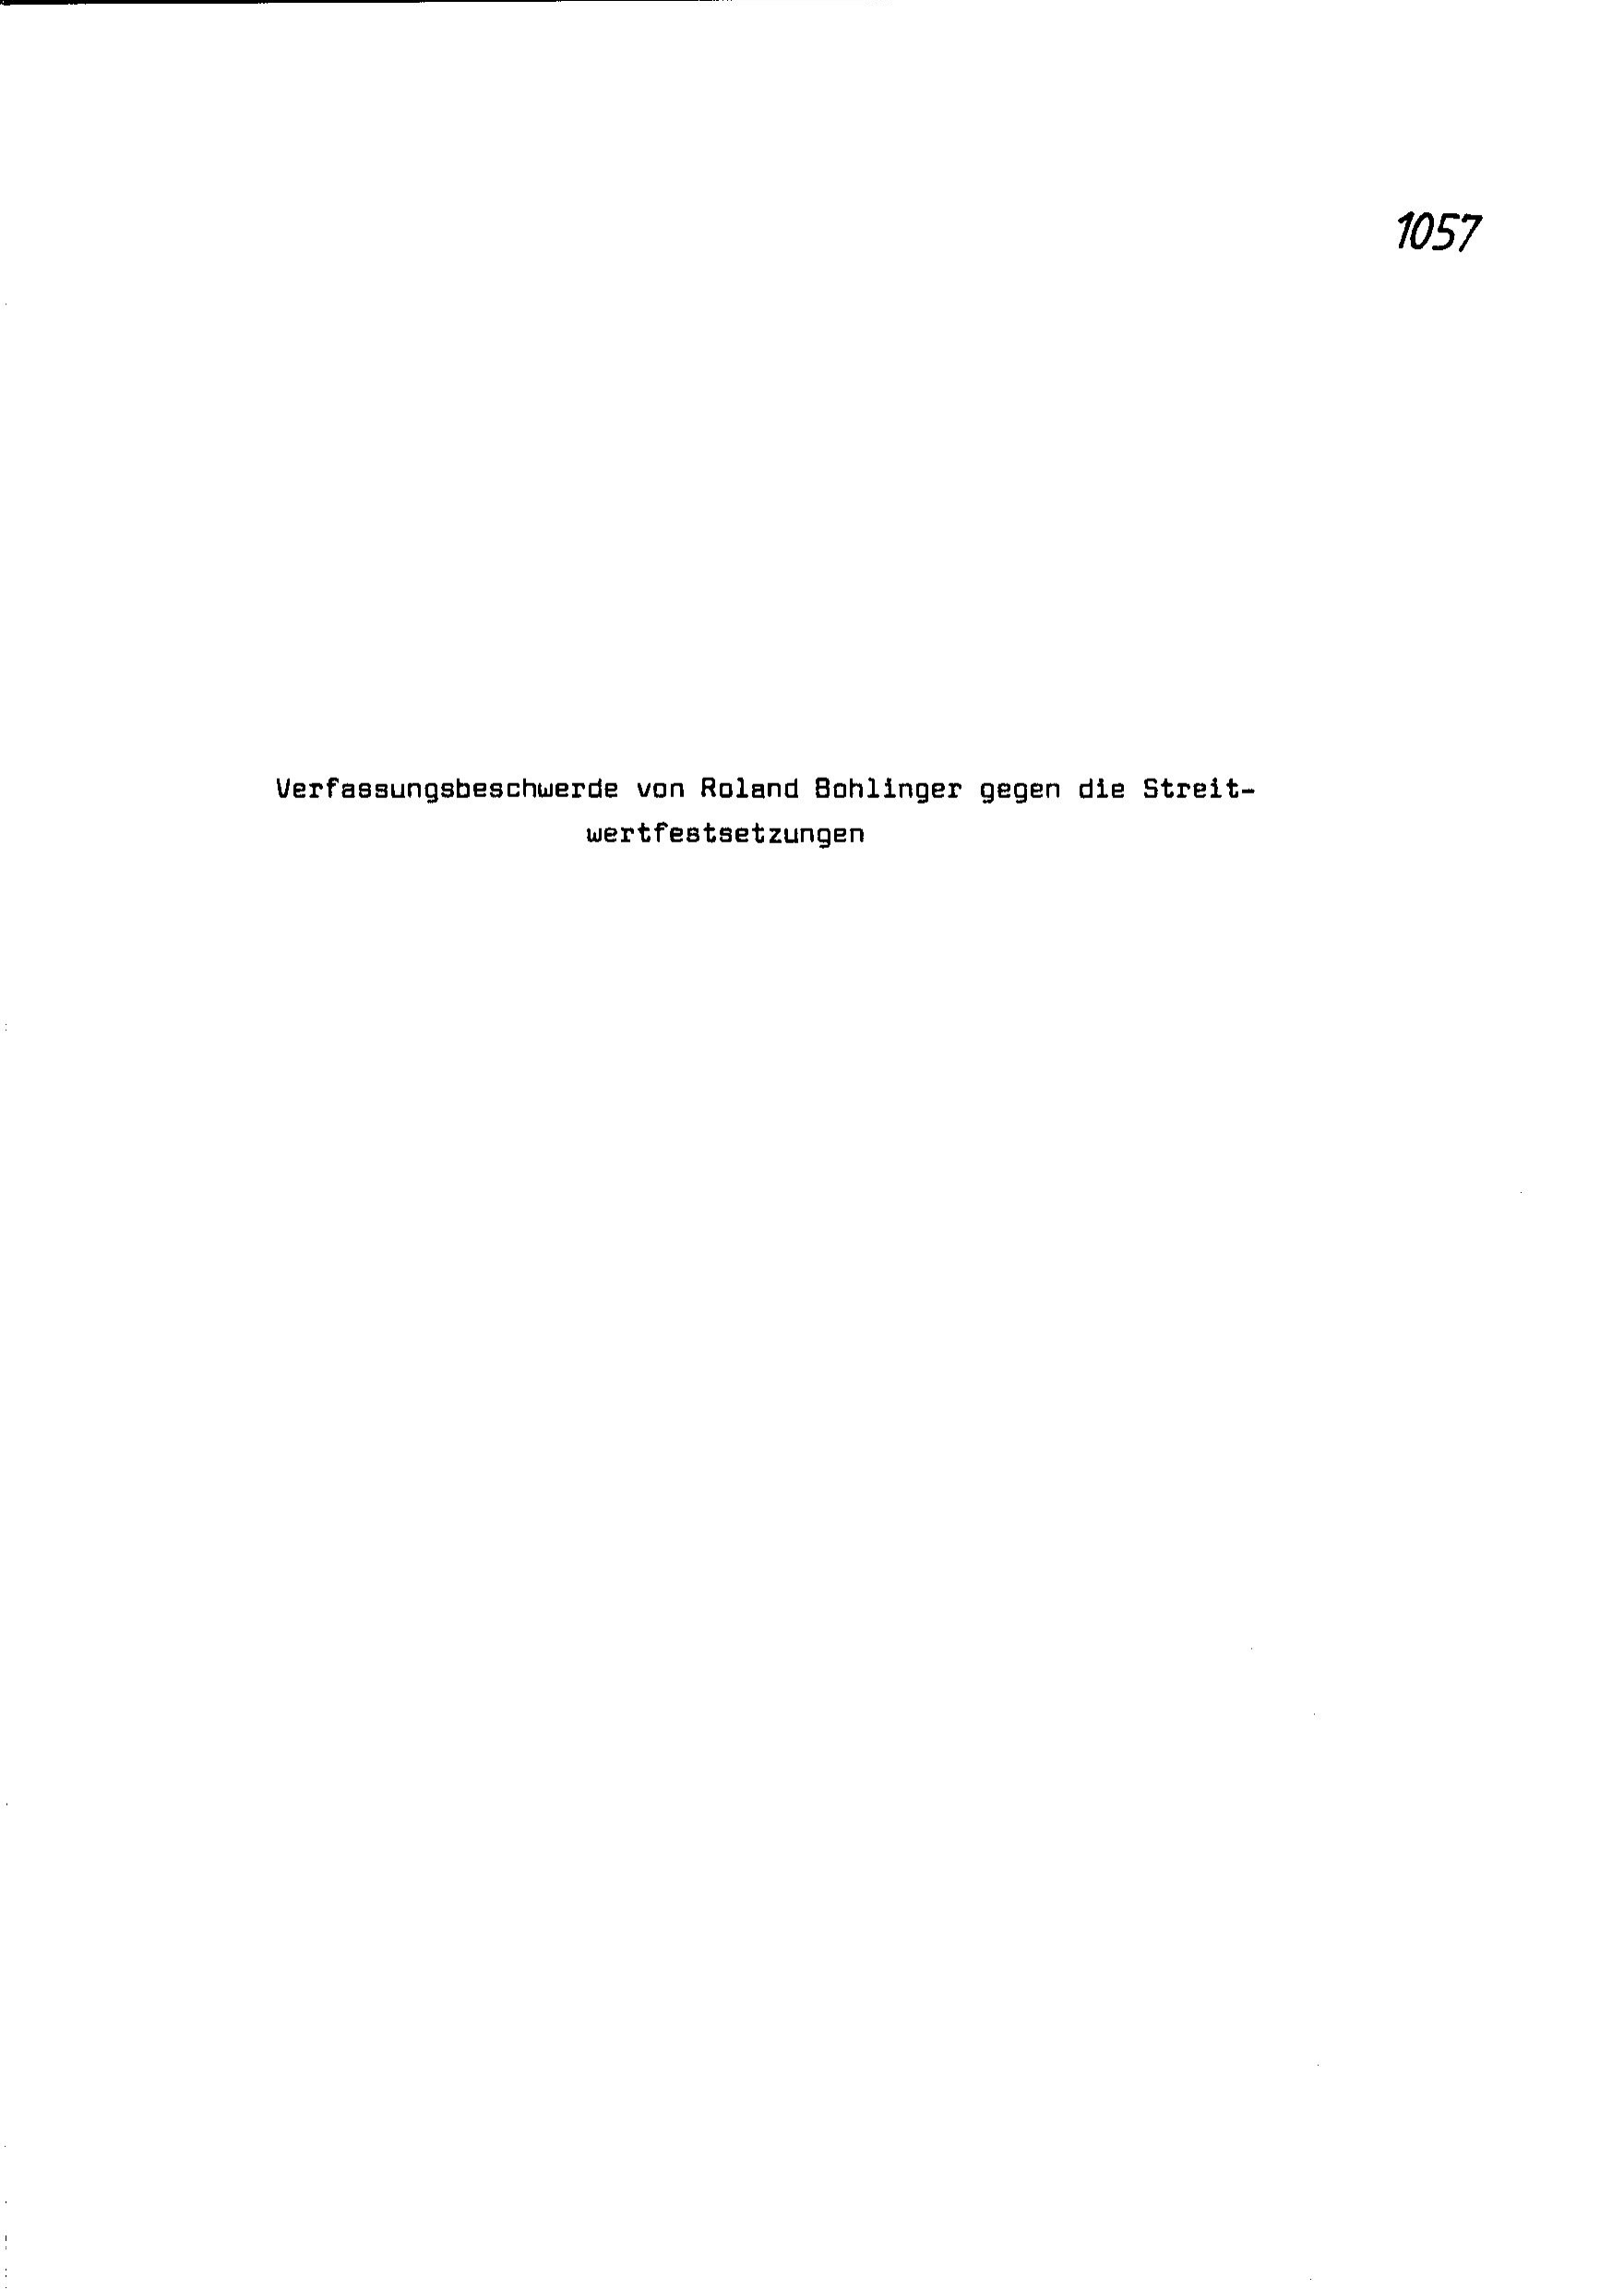 1057
Verfassungsbeschwerde von Roland Bohlinger gegen die Streit-
wertfestsetzungen